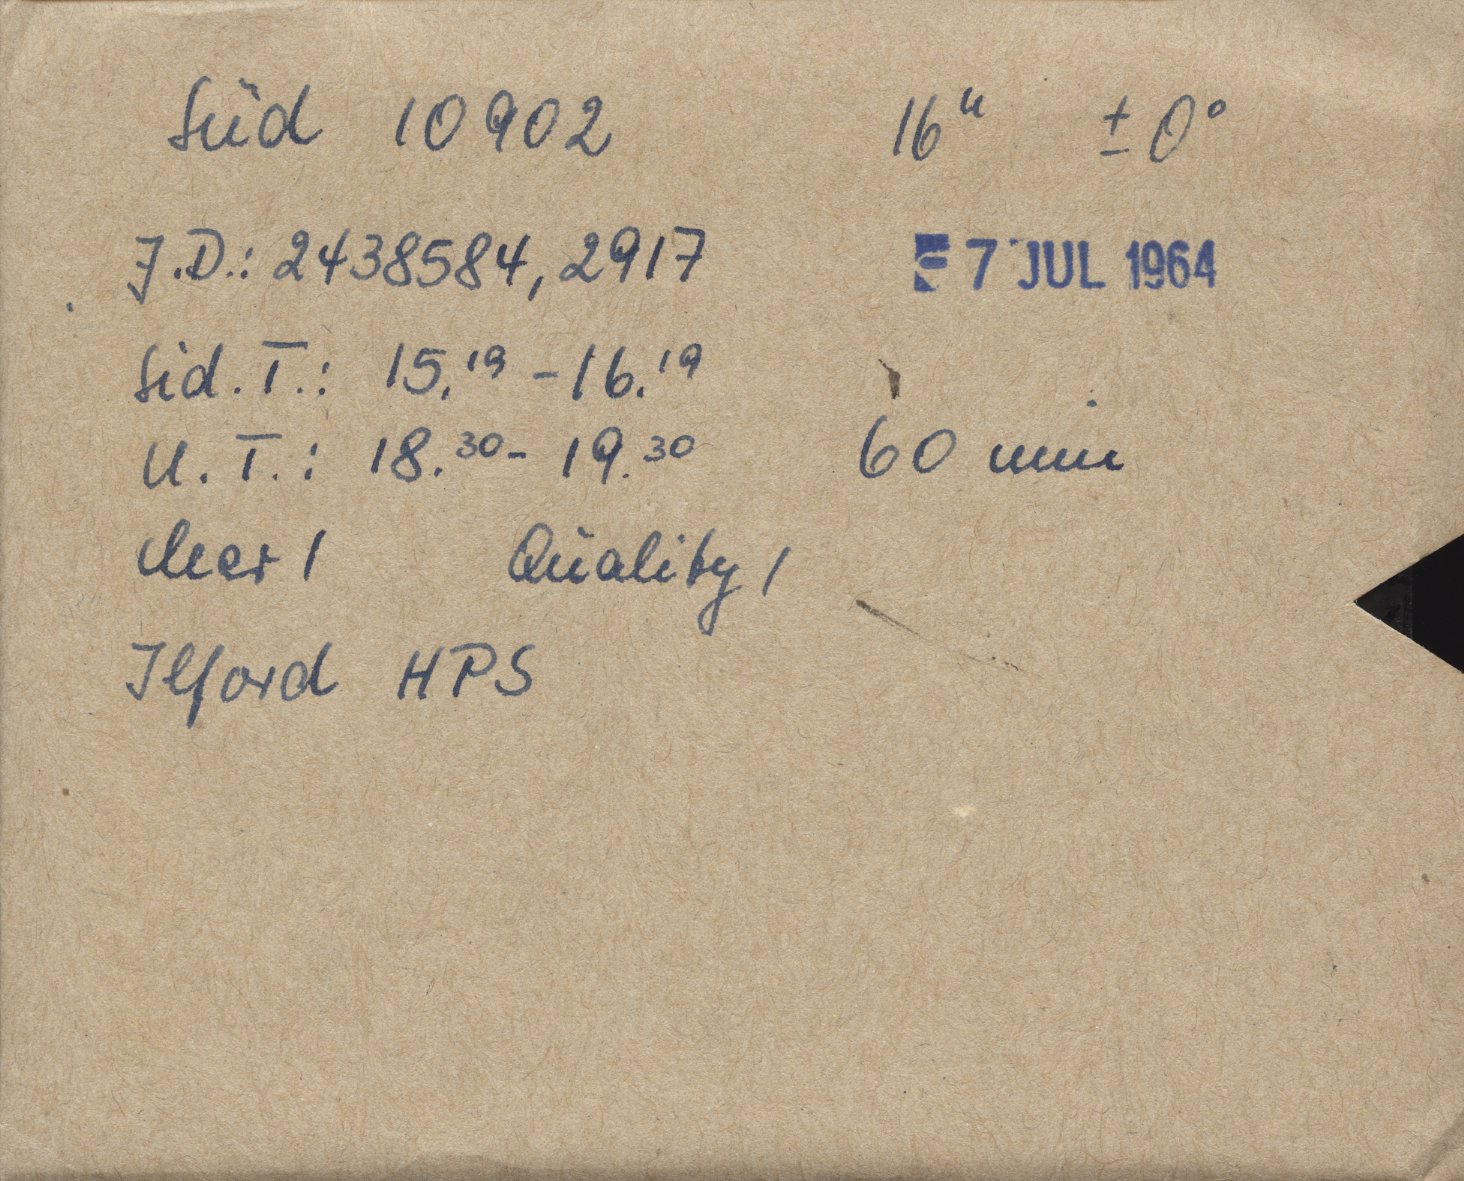 Süd 10902 16ʰ ± 0°
J.D.: 2438584,2917 7 JUL 1964
Sid. T.: 15.¹⁹ - 16.¹⁹
U. T.: 18.³⁰ - 19.³⁰ 60 min
1 Quality 1
Ilford HPS